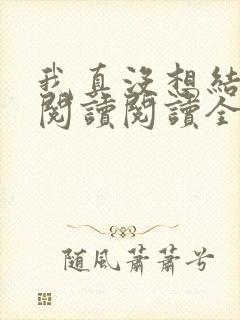 我真沒想結
閱讀閱讀全
随風蕭蕭兮